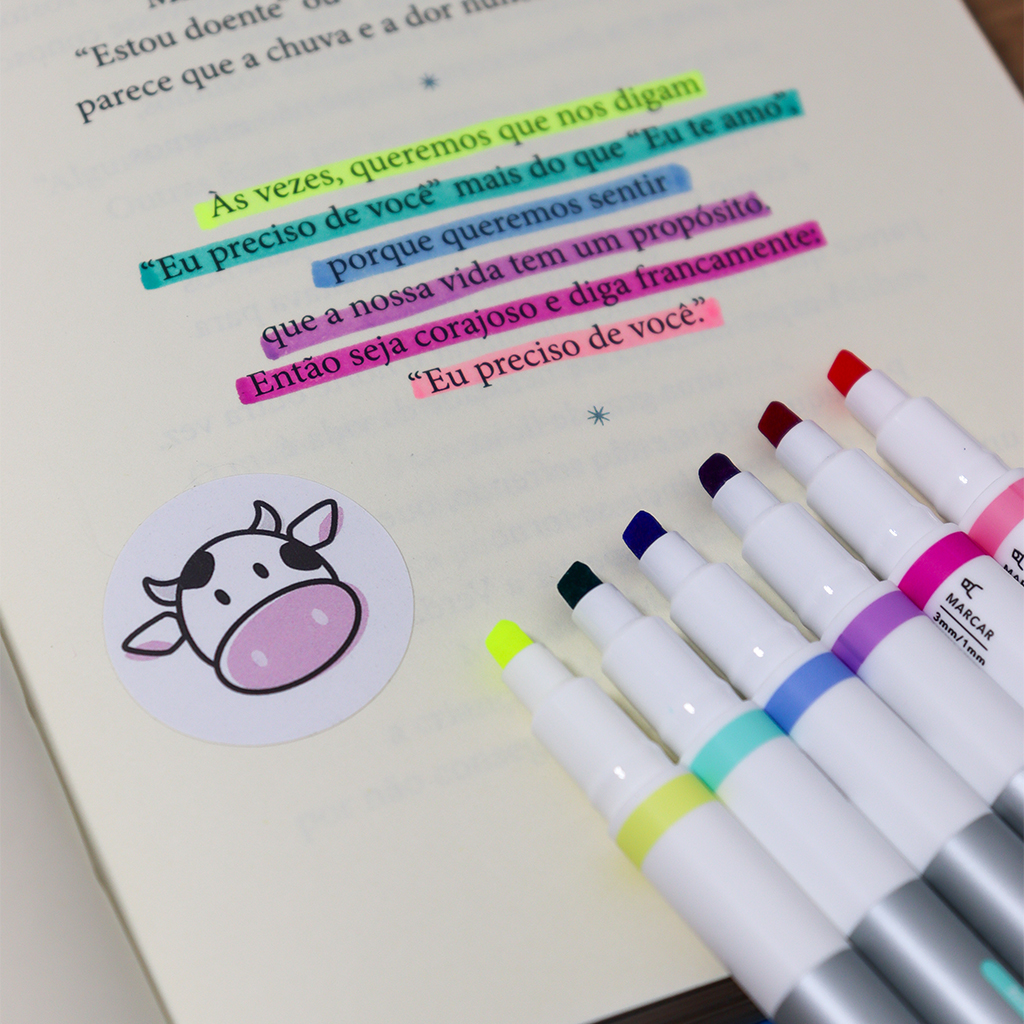 “Estou doente” ou
parece que a chuva e a dor
Às vezes, queremos que nos digam
“Eu preciso de você” mais do que “Eu te amo”,
porque queremos sentir
que a nossa vida tem um propósito.
Então seja corajoso e diga francamente:
“Eu preciso de você.”
MARCAR
3mm/1mm